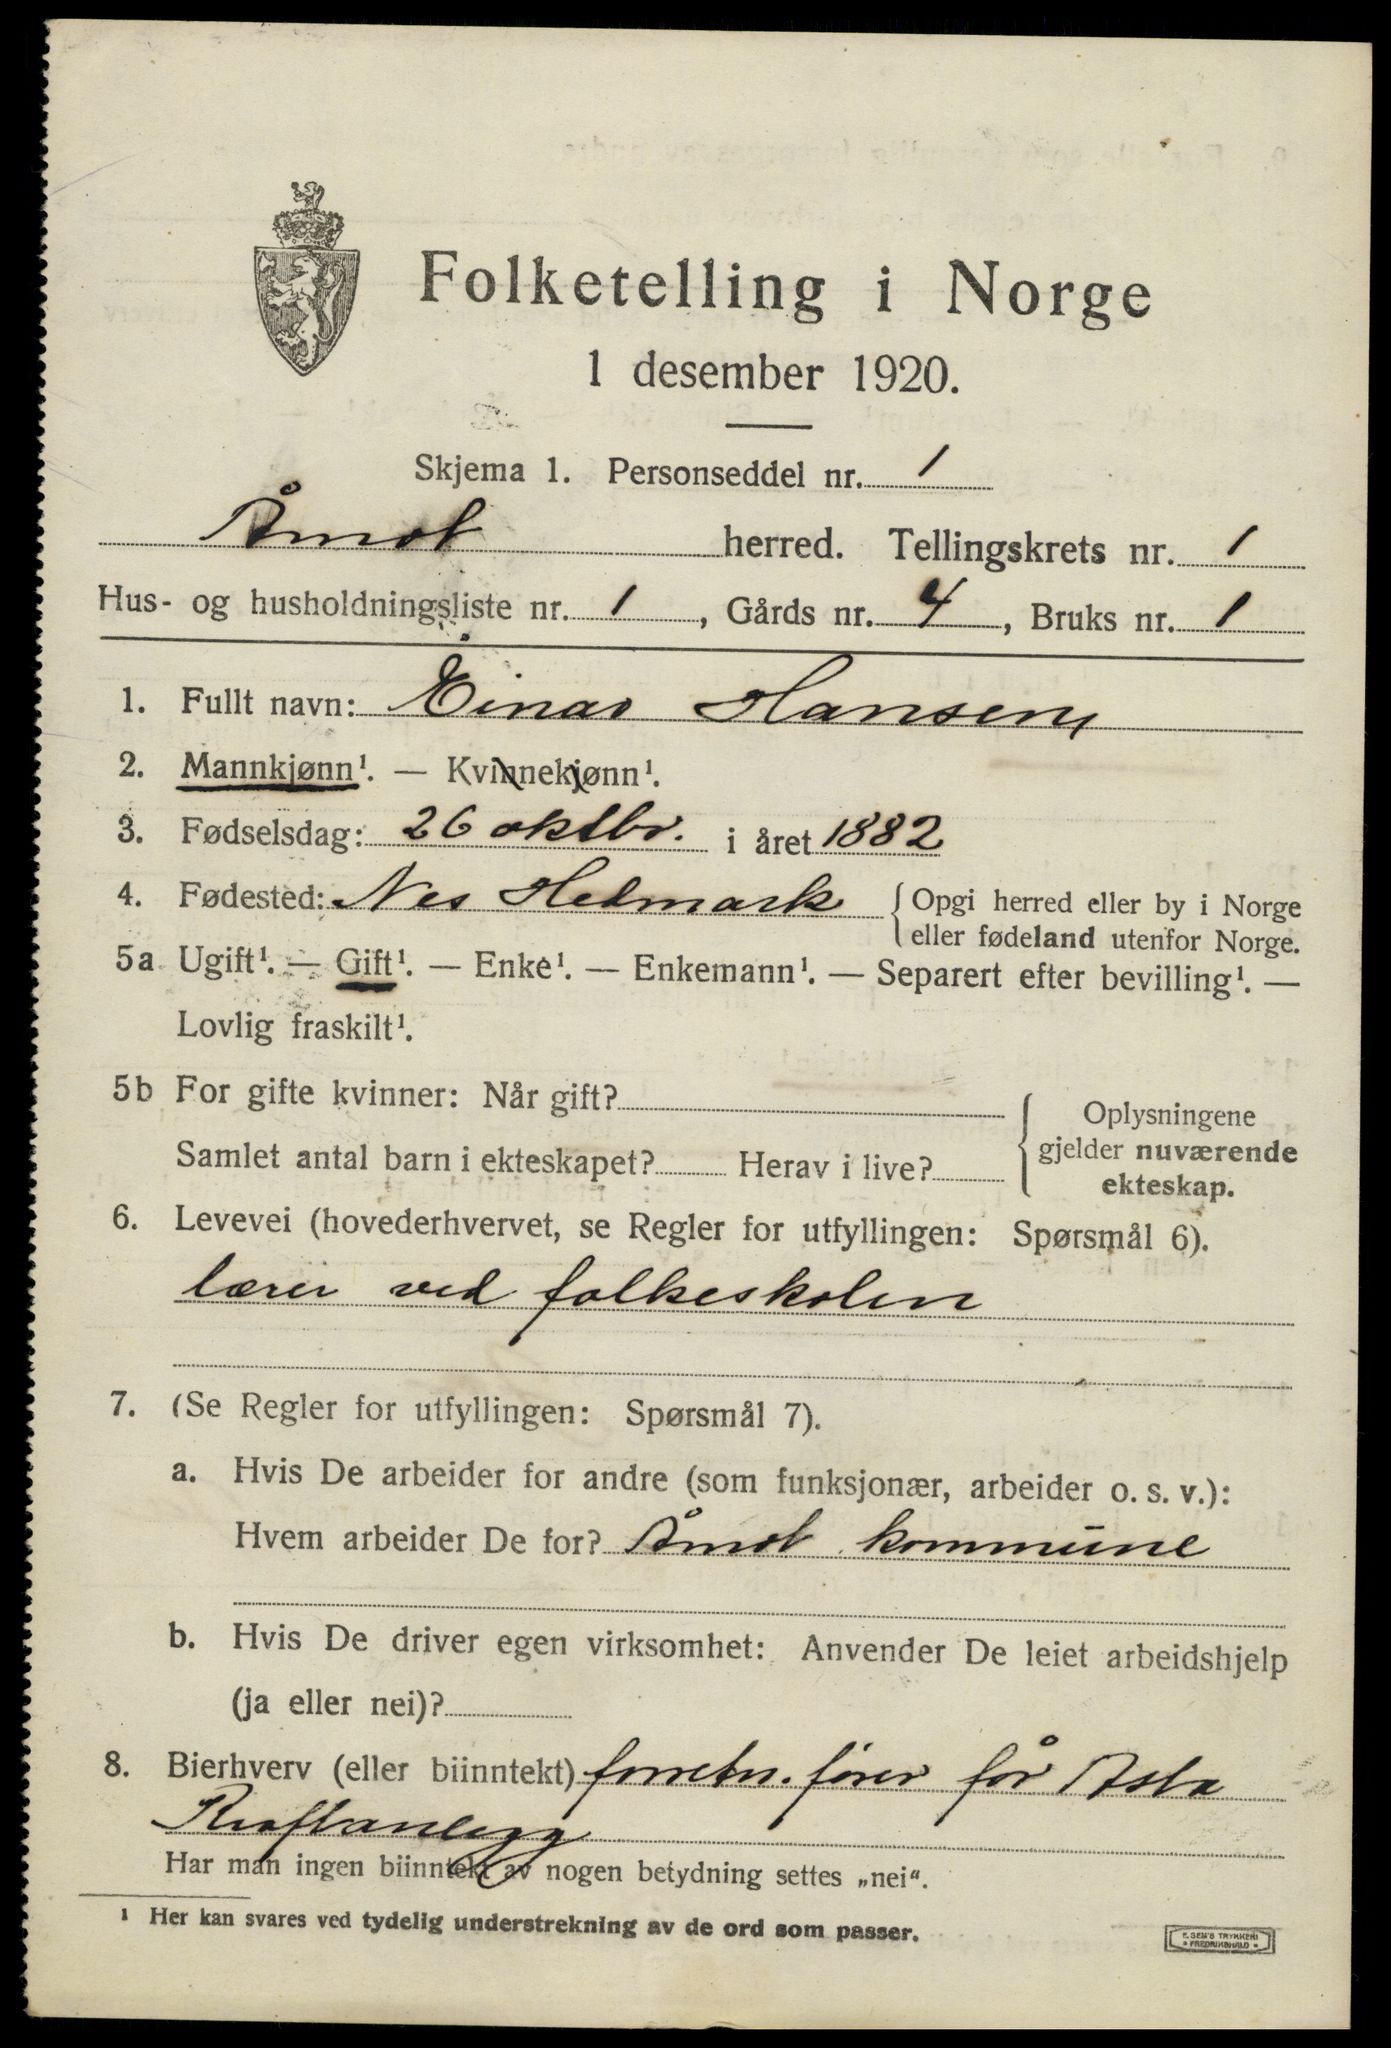 Folketelling i Norge
1 desember 1920.
Skjema 1. Personseddel nr. 1
Åmot herred. Tellingskrets nr. 1
Hus- og husholdningsliste nr. 1, Gårds nr. 4, Bruks nr. 1
1. Fullt navn: Einar Hansen
2. Mannkjønn¹. — Kvinnekjønn¹.
3. Fødselsdag: 26 oktbr. i året 1882
4. Fødested: Nes Hedmark { Opgi herred eller by i Norge
eller fødeland utenfor Norge.
5a Ugift¹. — Gift¹. — Enke¹. — Enkemann¹. — Separert efter bevilling¹. —
Lovlig fraskilt¹.
5b For gifte kvinner: Når gift?
Samlet antal barn i ekteskapet? Herav i live?
{ Oplysningene
gjelder nuværende
ekteskap.
6. Levevei (hovederhvervet, se Regler for utfyllingen: Spørsmål 6).
lærer ved folkeskolen
7. (Se Regler for utfyllingen: Spørsmål 7).
a. Hvis De arbeider for andre (som funksjonær, arbeider o. s. v.):
Hvem arbeider De for? Åmot kommune
b. Hvis De driver egen virksomhet: Anvender De leiet arbeidshjelp
(ja eller nei)?
8. Bierhverv (eller biinntekt) forretn.fører for Åsta
Kraftanlegg
Har man ingen biinntekt av nogen betydning settes „nei“.
¹ Her kan svares ved tydelig understrekning av de ord som passer.
E. SEM'S TRYKKERI
FREDRIKSHALD